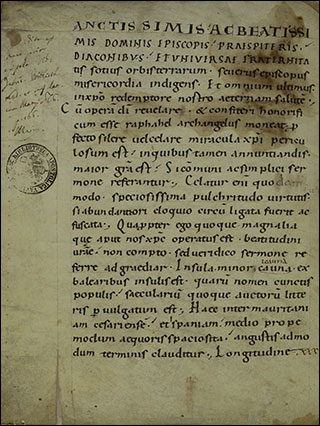 ANCTIS SIMIS AC BEATISSI
MIS DOMINIS EPISCOPIS PRAESPITERIS.
DIACONIBUS. ET UNIVERSAE FRATERNITA
tis totius orbis terrarum. severus episcopus
misericordia indigens. et omnium ultimus
in xpo redemptore nostro aeternam salutē.
Cū opera dī revelare. & confiteri honorifi
cum esse raphahel archangelus moneat. p
fecto silere vel celare miracula xpi pericu
losum est. in quibus tamen annuntiandis
maior gra est. Si comuni ac simplici ser
mone referantur. Celatur enī quodam
modo. speciosissima pulchritudo virtutis.
si abundantiori eloquio circu ligata fuerit ac
fuscata. Quapter ego quoque magnalia
que aput nos xpc operatus est. beatitudini
urae. non compto. sed veridico sermone re
ferre adgrediar. Insula minor cauna. ex
balearibus insulis est. quarū nomen cunctis
populis. saecularum quoque auctorū litte
ris pvulgatum est. Haec inter mauritani
am cesariense. et spaniam. medio prope
modum aequoris spatio sita. angustis admo
dum terminis clauditur. Longitudine xxx